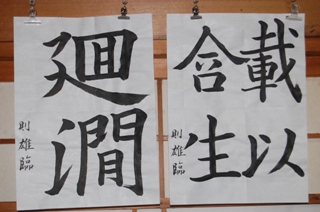 載以
含生
則雄臨
廻澗
則雄臨